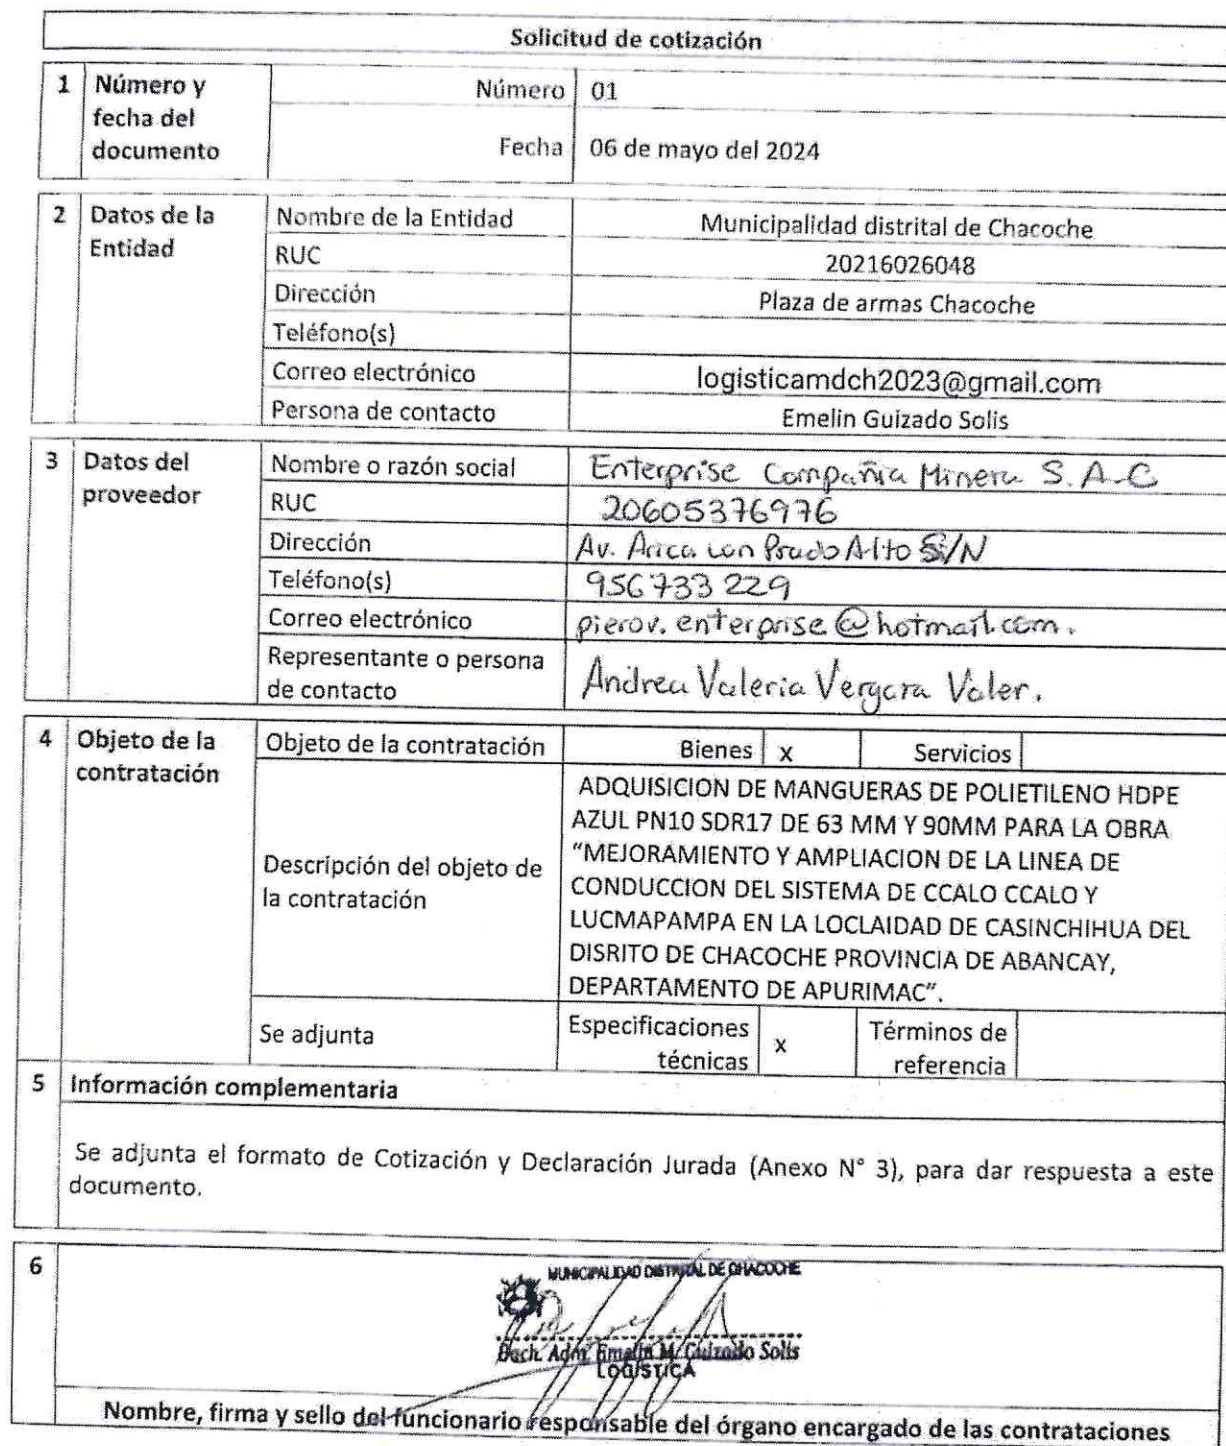 Solicitud de cotización
1 Número y fecha del documento
Número 01
Fecha 06 de mayo del 2024
2 Datos de la Entidad
Nombre de la Entidad Municipalidad distrital de Chacoche
RUC 20216026048
Dirección Plaza de armas Chacoche
Teléfono(s)
Correo electrónico logisticamdch2023@gmail.com
Persona de contacto Emelin Guizado Solis
3 Datos del proveedor
Nombre o razón social Enterprise Compañia Minera S.A.C
RUC 20605376976
Dirección Av. Arica con Prado Alto S/N
Teléfono(s) 956733229
Correo electrónico pierov.enterprise@hotmail.com.
Representante o persona de contacto Andrea Valeria Vergara Valer.
4 Objeto de la contratación
Objeto de la contratación Bienes x Servicios
Descripción del objeto de la contratación
ADQUISICION DE MANGUERAS DE POLIETILENO HDPE
AZUL PN10 SDR17 DE 63 MM Y 90MM PARA LA OBRA
"MEJORAMIENTO Y AMPLIACION DE LA LINEA DE
CONDUCCION DEL SISTEMA DE CCALO CCALO Y
LUCMAPAMPA EN LA LOCLAIDAD DE CASINCHIHUA DEL
DISRITO DE CHACOCHE PROVINCIA DE ABANCAY,
DEPARTAMENTO DE APURIMAC".
Se adjunta Especificaciones técnicas x Términos de referencia
5 Información complementaria
Se adjunta el formato de Cotización y Declaración Jurada (Anexo N° 3), para dar respuesta a este
documento.
6
MUNICIPALIDAD DISTRITAL DE CHACOCHE
Bach. Adm. Emelin M. Guizado Solis
LOGÍSTICA
Nombre, firma y sello del funcionario responsable del órgano encargado de las contrataciones